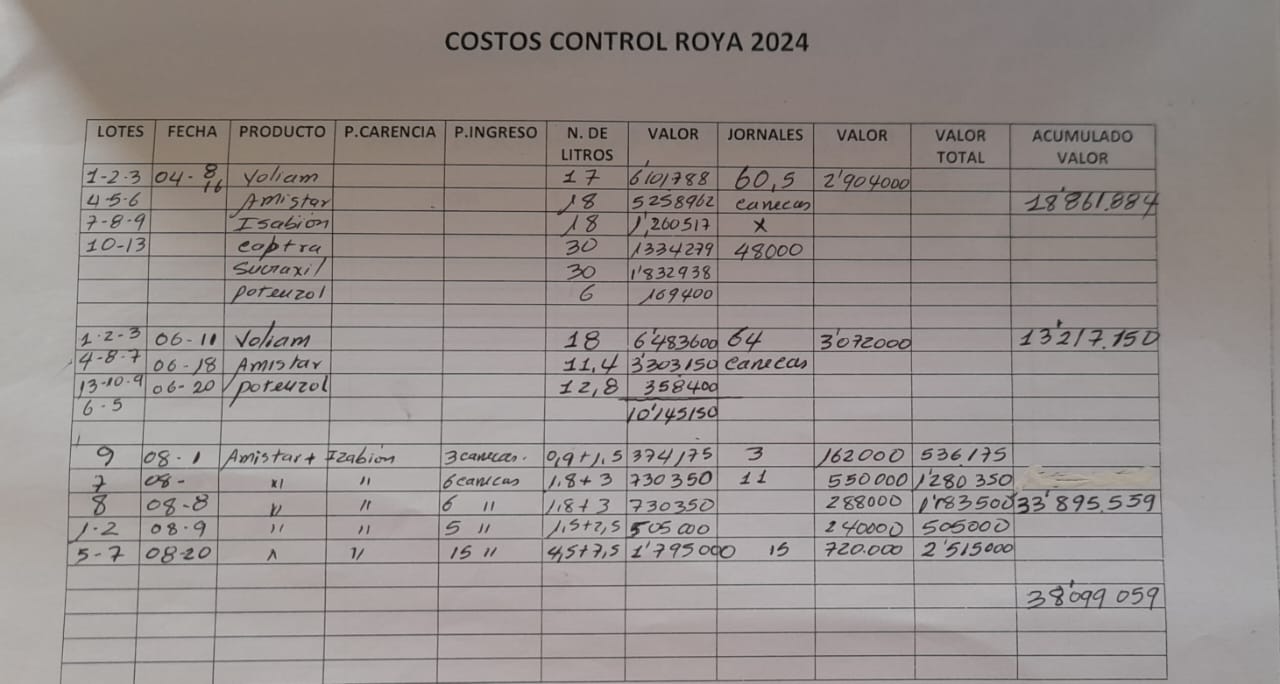 COSTOS CONTROL ROYA 2024
LOTES FECHA PRODUCTO P.CARENCIA P.INGRESO N. DE LITROS VALOR JORNALES VALOR VALOR TOTAL ACUMULADO VALOR
1-2-3 04-8/16 Voliam 17 6'101788 60,5 2'904000
4-5-6 Amistar 18 5258962 canecas 18'861.884
7-8-9 Isabión 18 1'260517 x
10-13 coptra 30 1334279 48000
Sucraxil 30 1'832938
potenzol 6 169400
1-2-3 06-11 Voliam 18 6'483600 64 3'072000 13'217.150
4-8-7 06-18 Amistar 11,4 3'303150 canecas
13-10-9 06-20 potenzol 12,8 358400
6-5 10'145150
9 08-1 Amistar + Izabión 3 canecas. 0,9+1,5 374175 3 162000 536175
7 08- " " 6 canecas 1,8+3 730350 11 550000 1'280350
8 08-8 " " 6 " 1,8+3 730350 288000 1'183500 33'895.559
1-2 08-9 " " 5 " 1,5+2,5 505000 240000 505000
5-7 08-20 " " 15 " 4,5+7,5 1'795000 15 720.000 2'515000
38'099059